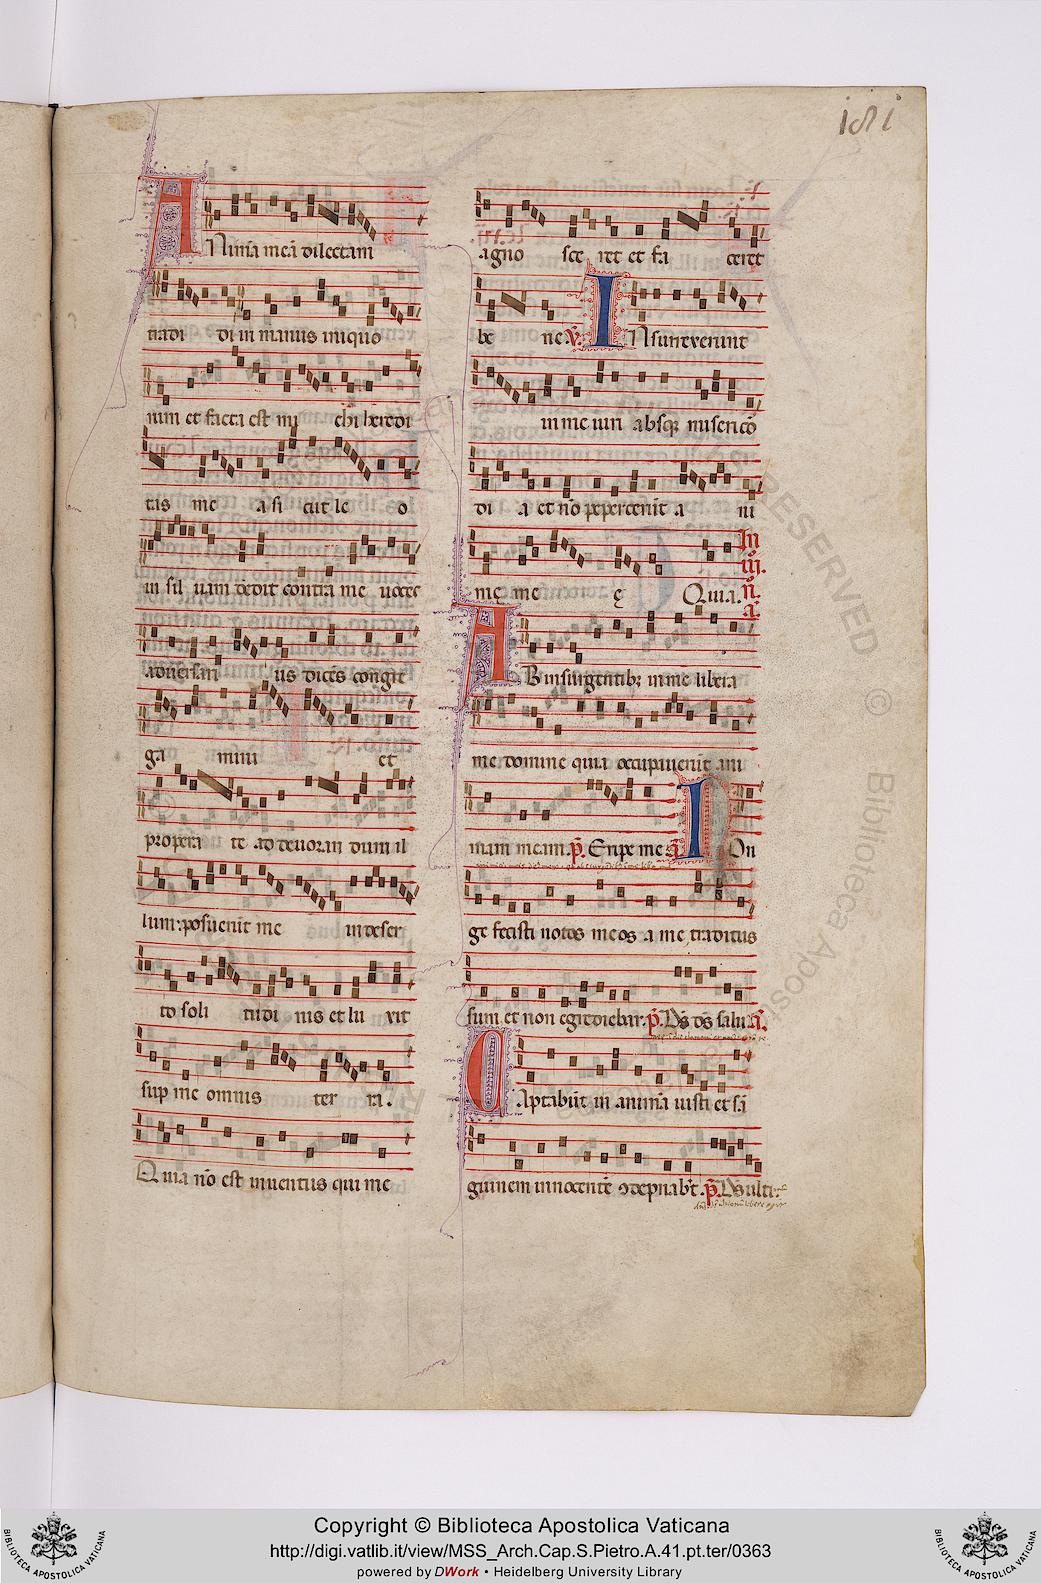 181
ANimā meā dilectam
tradi di in manus iniquo
rum et facta est mi chi heredi
tas me a si cut le o
in sil uam dedit contra me uoces
aduersari us dicēs congre
ga mini et
propera te ad deuoran dum il
lum: posuerūt me in deser
to soli tudi nis et lu xit
sup me omnis ter ra.
Quia nō est inuentus qui me
agno sce ret et fa ceret
be ne. ℣. INsurrexerunt
in me uiri absqꝫ misericō
di a et nō pepercerūt a ni
me me ę Quia.
AB insurgentibꝫ in me libera
me domine quia occupauerūt ani
mam meam. p̄. Eripe me. NOn
ge fecisti notos meos a me traditus
sum et non egrediebar. p̄. Dn̄s ds̄ salu. a.
CAptabūt in animā iusti et sā
guinem innocentē ↄdēpnabūt. p̄. Ds̄ ulti.
RESERVED © Biblioteca Aposto
BIBLIOTECA APOSTOLICA VATICANA
Copyright © Biblioteca Apostolica Vaticana
http://digi.vatlib.it/view/MSS_Arch.Cap.S.Pietro.A.41.pt.ter/0363
powered by DWork • Heidelberg University Library
BIBLIOTECA APOSTOLICA VATICANA